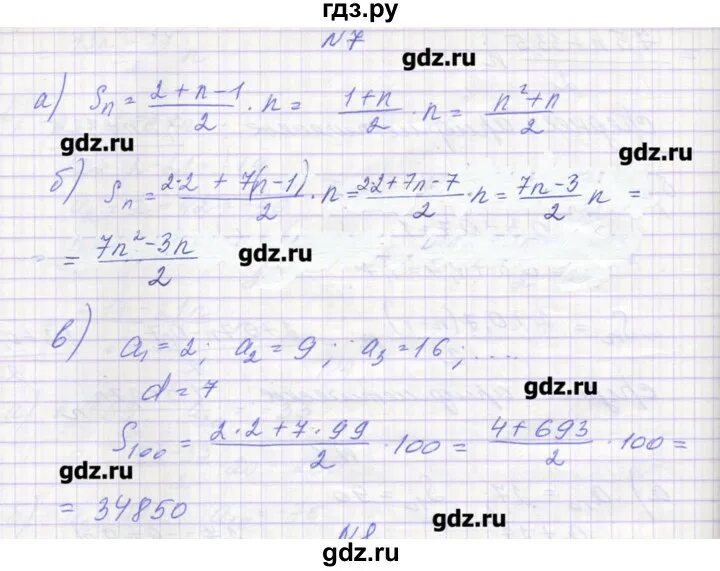 гдз.ру
N7
gdz.ru
а) Sn = (2+n-1)/2 · n = (1+n)/2 · n = (n²+n)/2
gdz.ru
gdz.ru
б) Sn = (2·2 + 7(n-1))/2 · n = (2·2+7n-7)/2 · n = (7n-3)/2 n =
= (7n²-3n)/2
gdz.ru
в) a₁ = 2; a₂ = 9; a₃ = 16; ....
d = 7
gdz.ru
S₁₀₀ = (2·2+7·99)/2 · 100 = (4+693)/2 · 100 =
gdz.ru
= 34850
gdz.ru
N8
gdz.ru